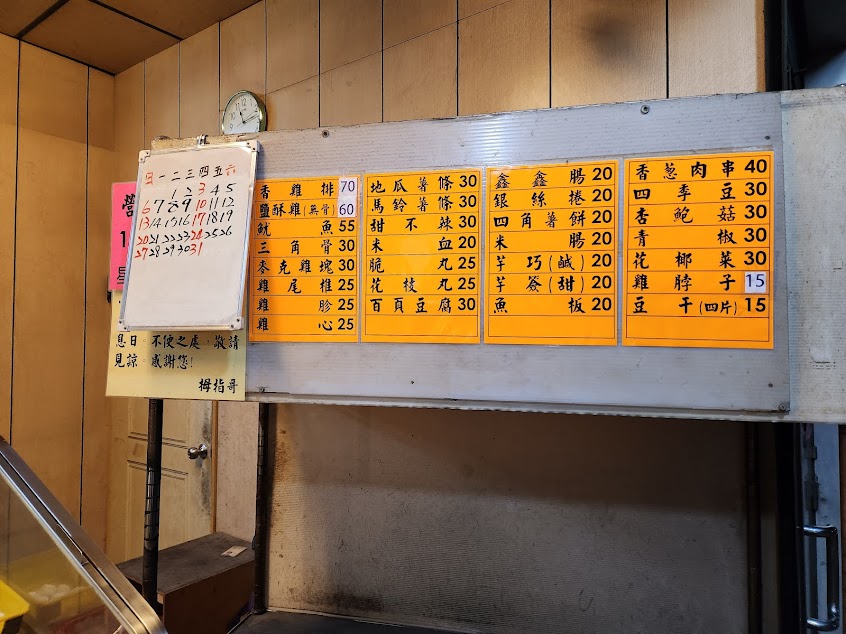 日一二三四五六
1 2 3 4 5
6 7 8 9 10 11 12
13 14 15 16 17 18 19
20 21 22 23 24 25 26
27 28 29 30 31
營
1
星
息日。不便之處。敬請
見諒。感謝您!
拇指哥
香雞排 70
鹽酥雞(無骨) 60
魷魚 55
三角骨 30
麥克雞塊 30
雞尾椎 25
雞胗 25
雞心 25
地瓜薯條 30
馬鈴薯條 30
甜不辣 30
米血 20
脆丸 25
花枝丸 25
百頁豆腐 30
鑫鑫腸 20
銀絲捲 20
四角薯餅 20
米腸 20
芋巧(鹹) 20
芋簽(甜) 20
魚板 20
香蔥肉串 40
四季豆 30
杏鮑菇 30
青椒 30
花椰菜 30
雞脖子 15
豆干(四片) 15